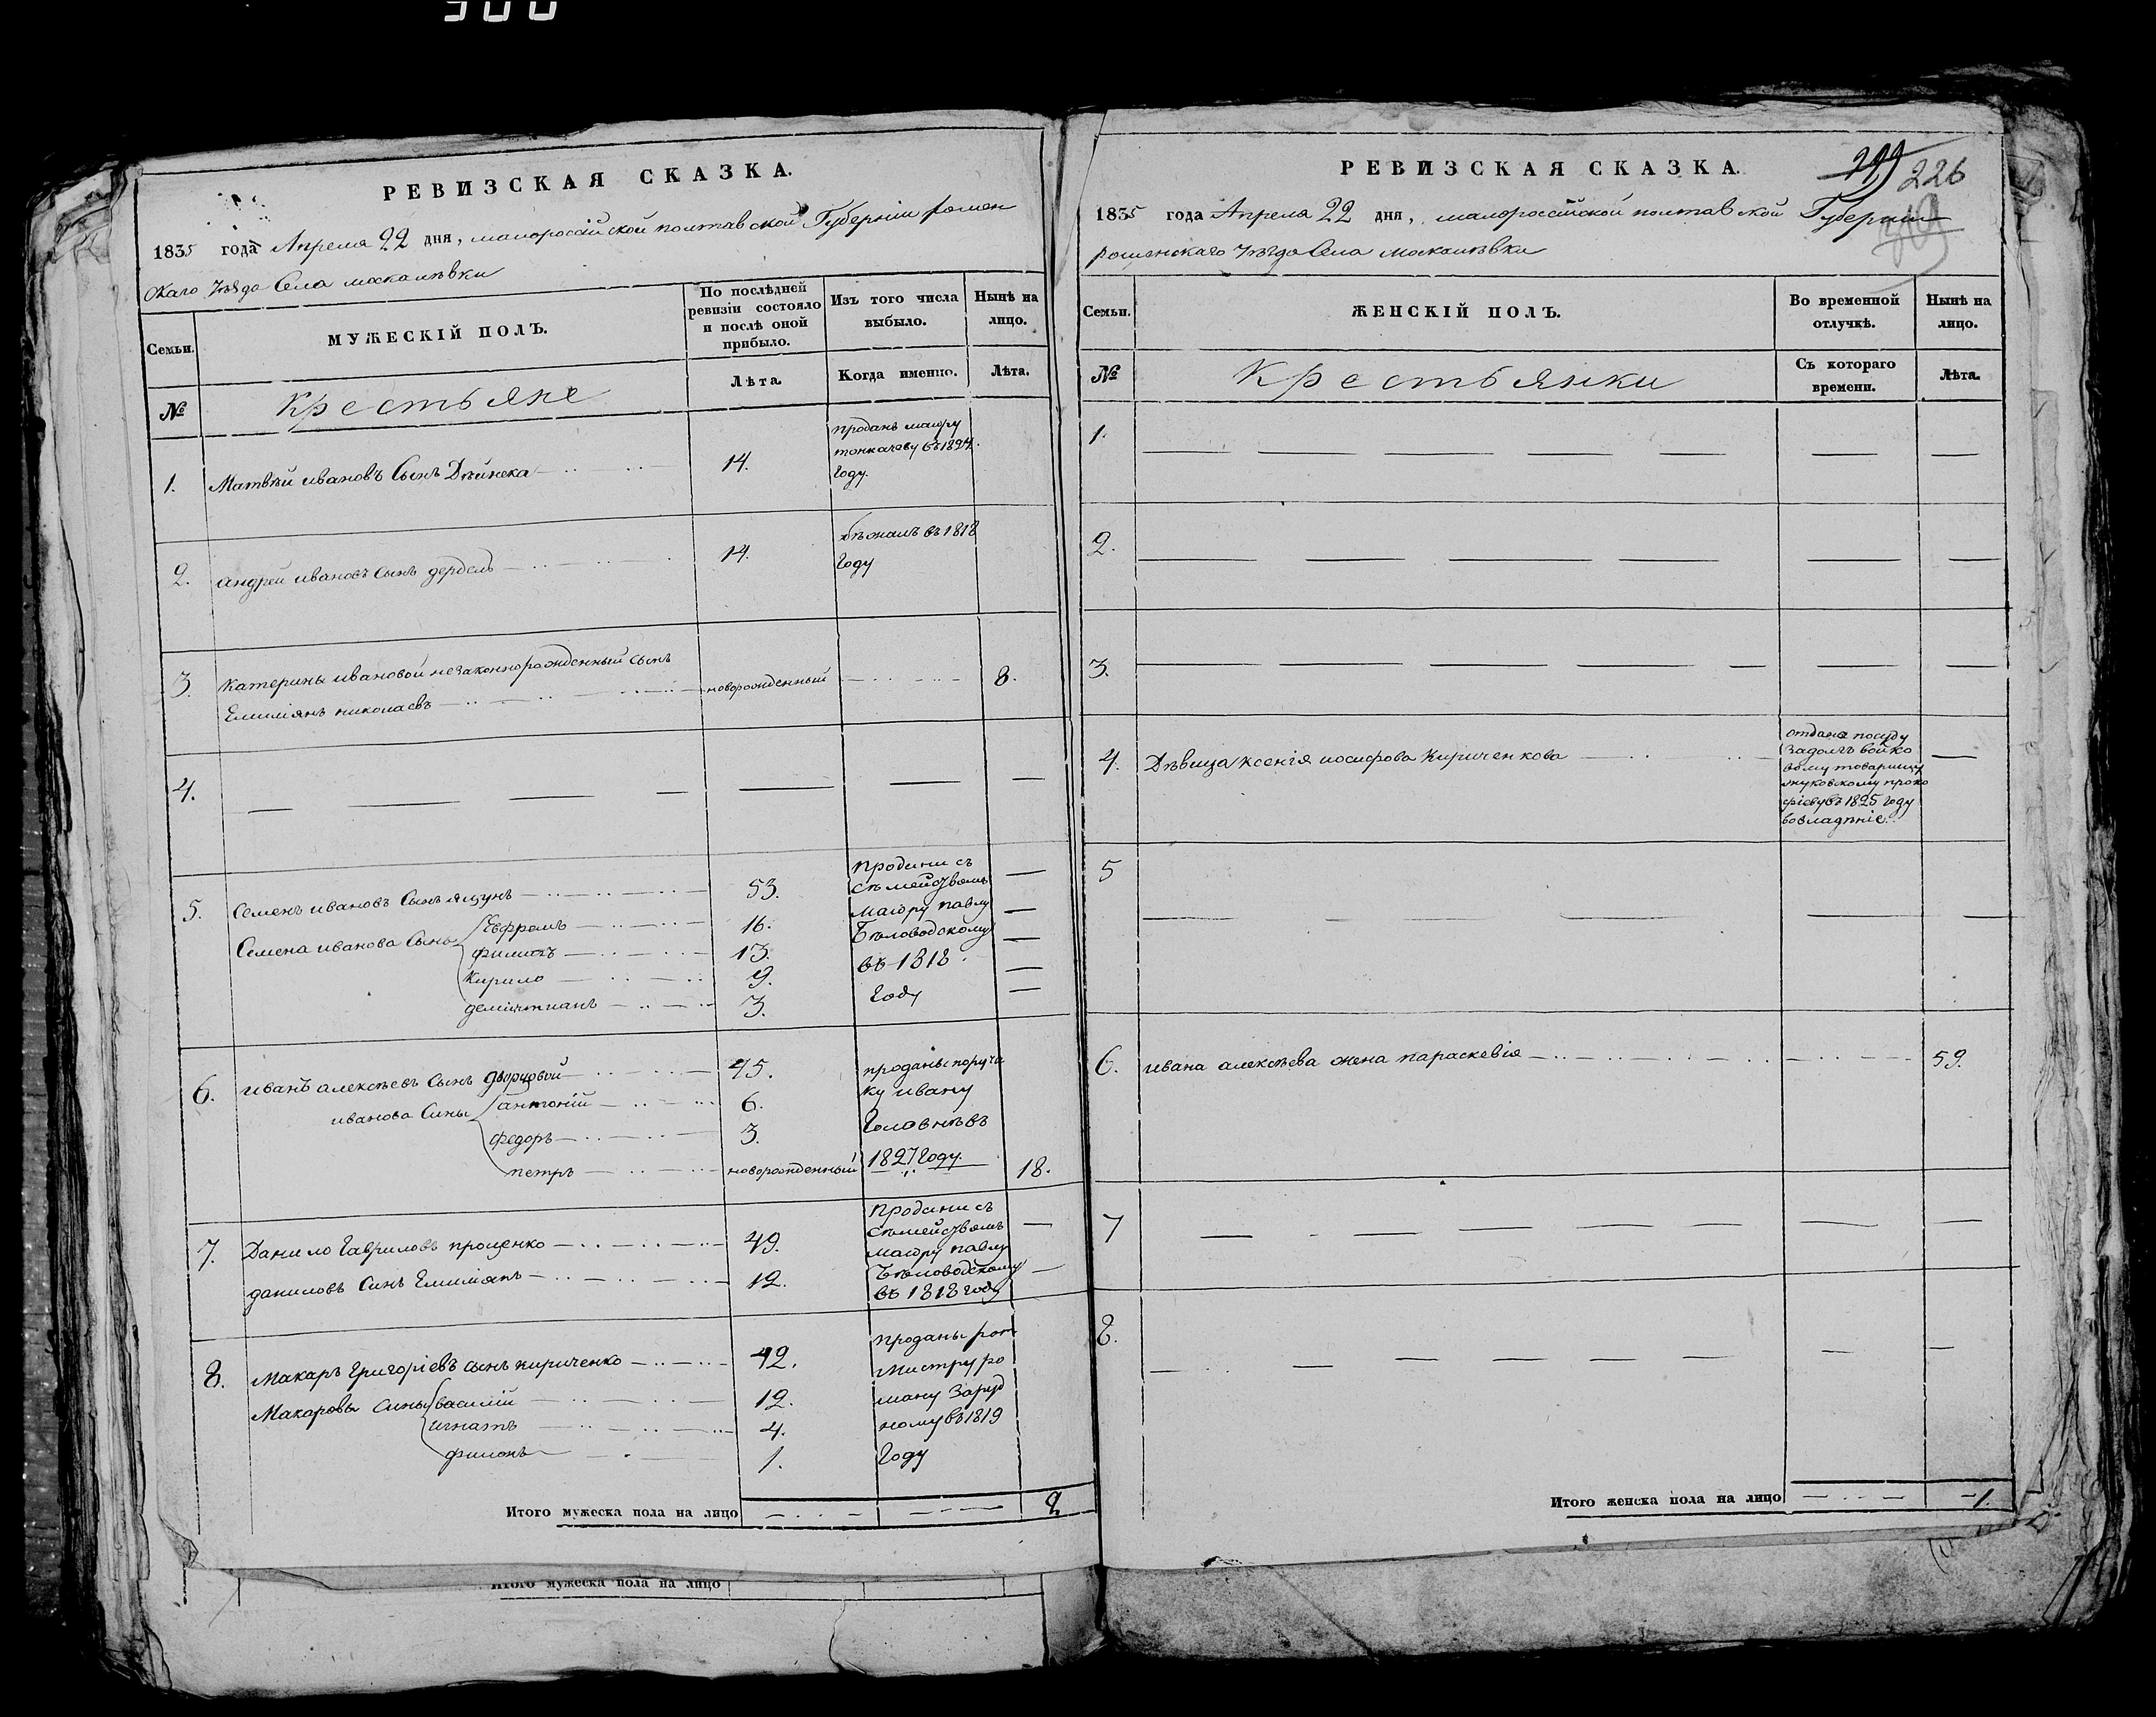 РЕВИЗСКАЯ СКАЗКА.
1835 года Апреля 22 дня, малороссійской полтавской Губерніи ромен
скаго уѣзда Села москалѣвки
Семьи.
МУЖЕСКІЙ ПОЛЪ.
По послѣдней ревизіи состояло и послѣ оной прибыло.
Изъ того числа выбыло.
Нынѣ на лицо.
№
Крестьяне
Лѣта.
Когда именно.
Лѣта.
1. Матвѣй ивановъ Сынъ Дѣйнека 14.
проданъ маіору
въ 1824
году.
2. андрей ивановъ Сынъ 14.
бѣжалъ въ 1818
году
3. Катерины ивановой незаконнорожденный сынъ
Емиліянъ николаевъ новорожденный 8.
4.
5. Семенъ ивановъ Сынъ 53.
Семена иванова Сыны Ефремъ 16.
филипъ 13.
Кирило 9.
3.
Проданы съ
сѣмейством
маіору павлу
Бѣловодскому
въ 1818
году
6. иванъ алексѣевъ Сынъ дворцовой 45.
иванова Сины антоній 6.
федоръ 3.
петръ новорожденный 18.
проданы поручи
ку ивану
1827 году.
7. Данило Гавриловъ проценко 49.
даниловъ Синъ Емиліянъ 12.
Проданы съ
сѣмейством
маіору павлу
Бѣловодскому
въ 1818 году
8. Макаръ Григоріевъ сынъ кириченко 42.
Макаровы сины василій 12.
игнатъ 4.
филонъ 1.
проданы рот
мистру ро
ману Заруд
ному въ 1819
году
Итого мужеска пола на лицо 2
Итого мужеска пола на лицо
РЕВИЗСКАЯ СКАЗКА.
226
1835 года Апреля 22 дня, малороссійской полтавской Губерніи
роменскаго уѣзда Села москалѣвки
Семьи.
ЖЕНСКІЙ ПОЛЪ.
Во временной отлучкѣ.
Нынѣ на лицо.
№
Крестьянки
Съ котораго времени.
Лѣта.
1.
2.
3.
4. Дѣвица Ксенія иосифова Кириченкова
отдана посуду
задолгъ войско
вому товарищу
жуковскому проко
фіеву въ 1825 году
вовладѣніе.
5
6. ивана алексѣева жена параскевія 59.
7
8.
Итого женска пола на лицо 1.